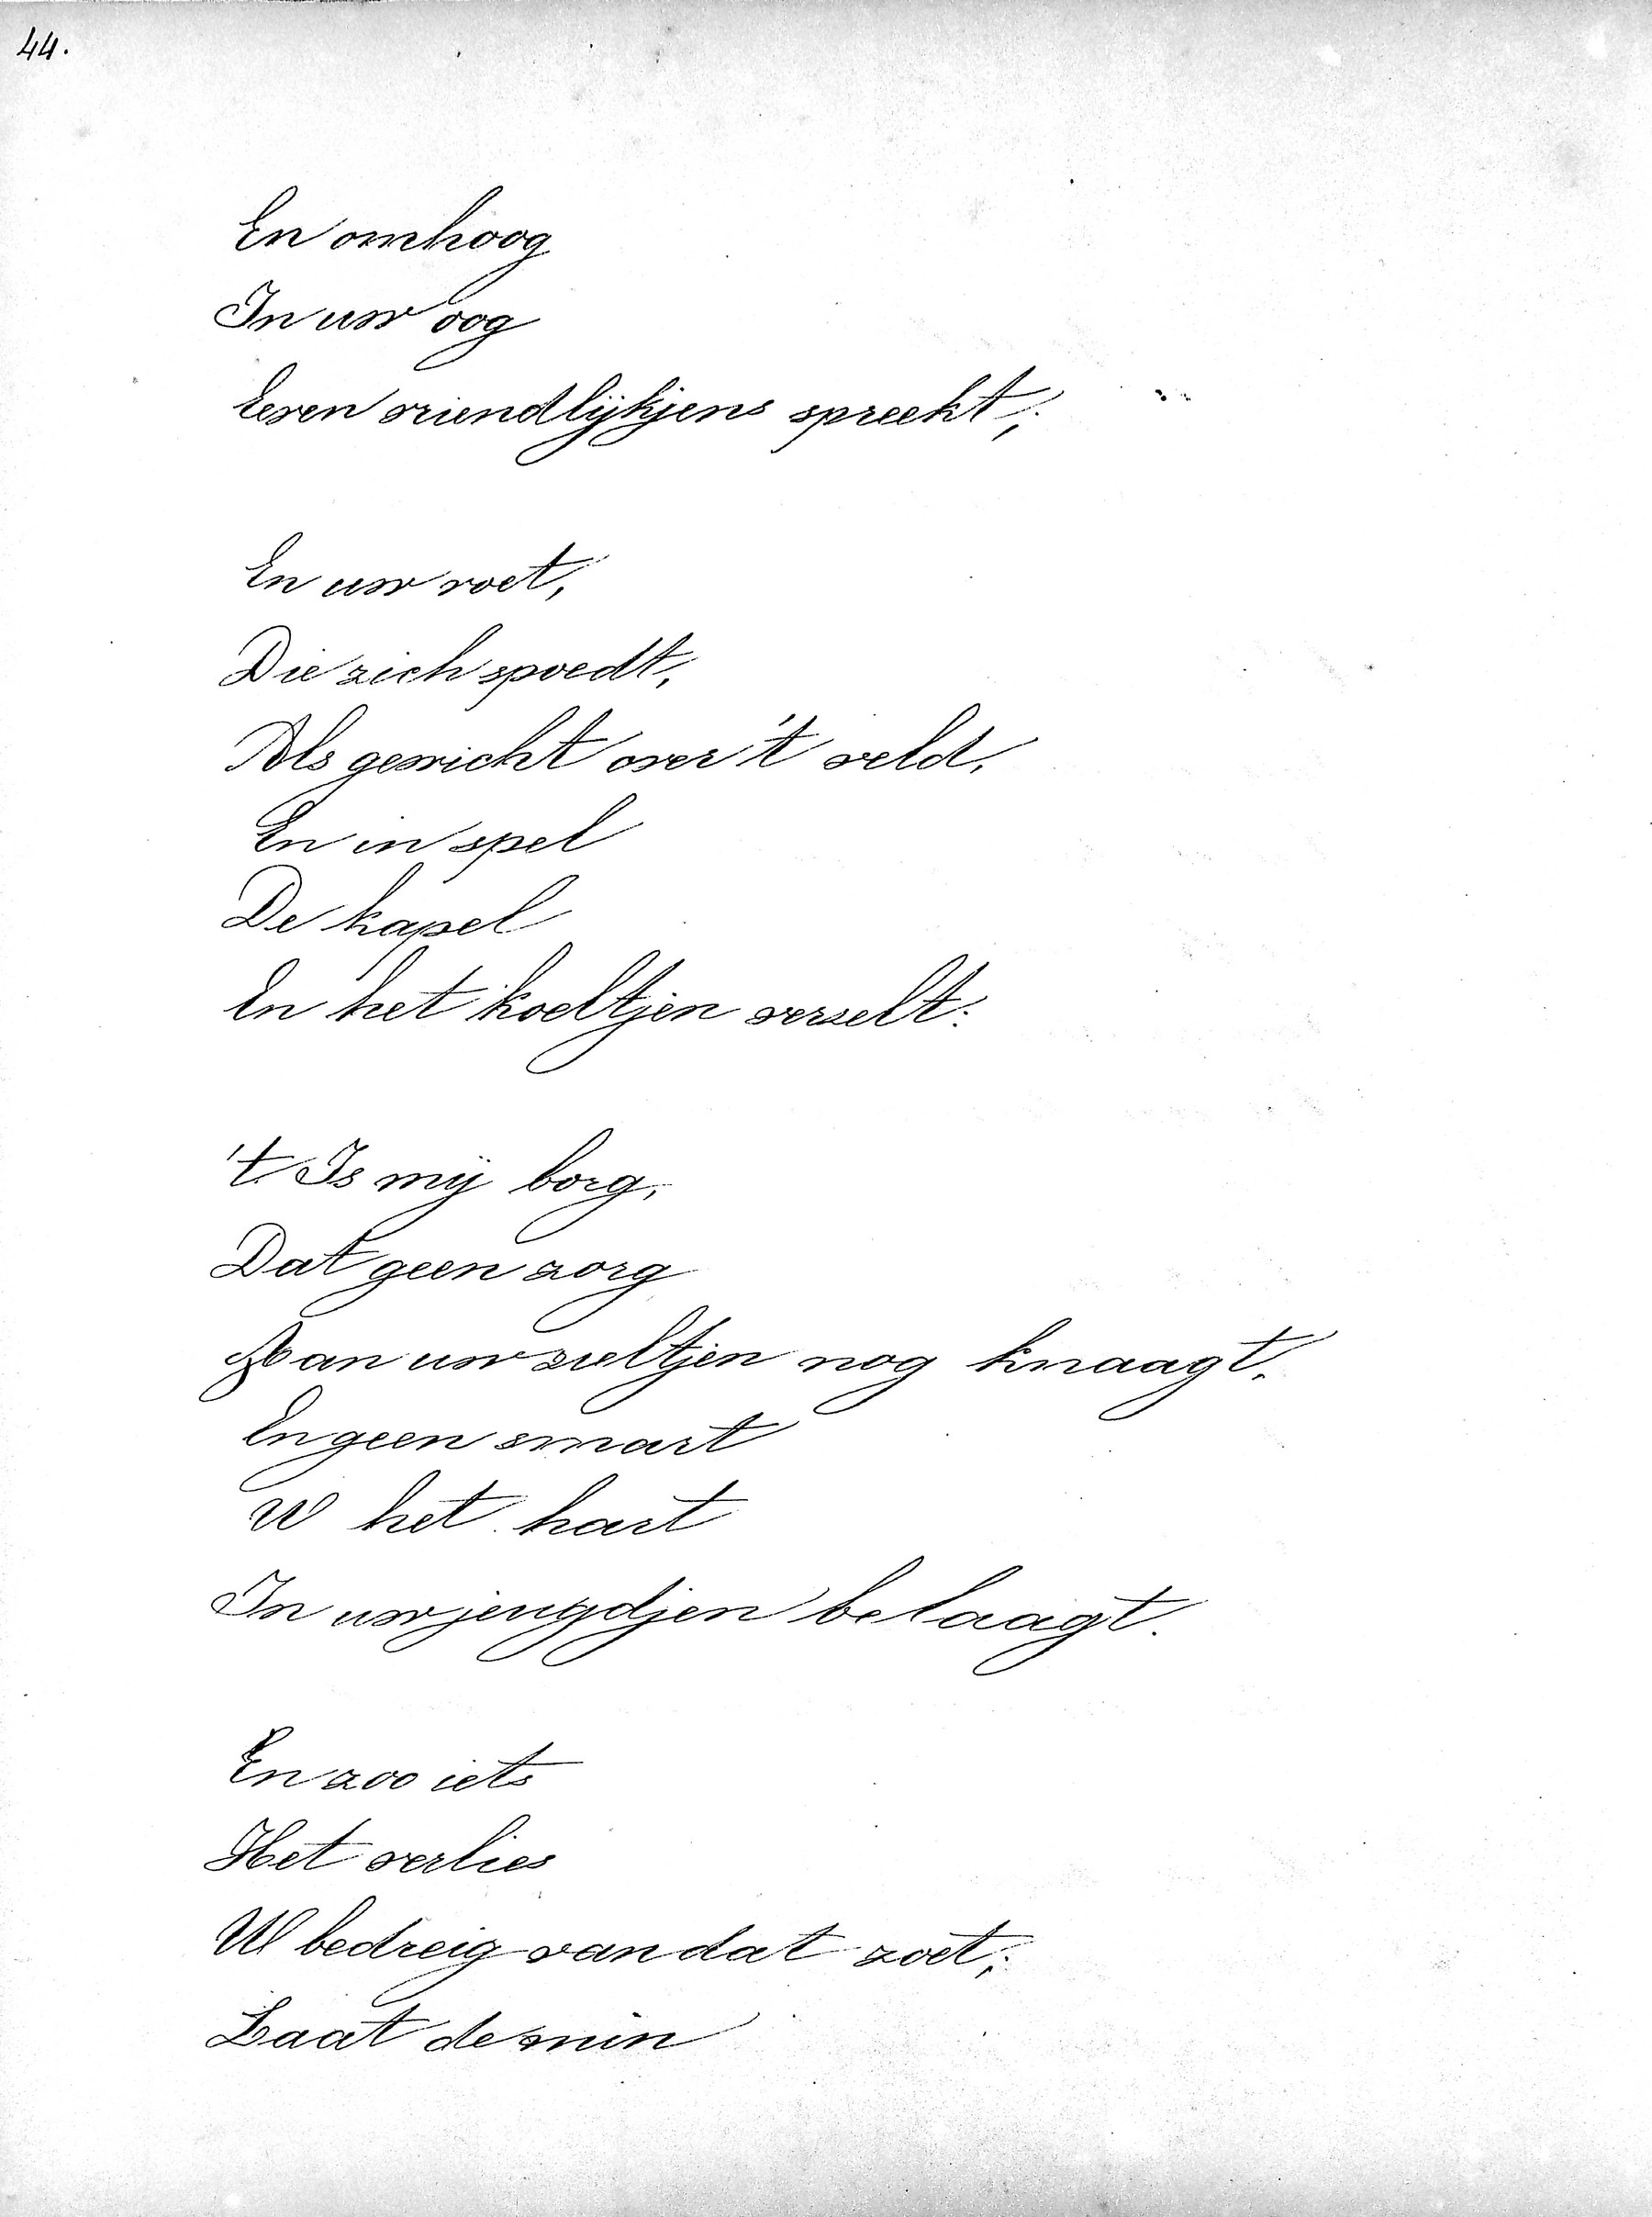 44.
En omhoog
In uw oog
Even vriendlijkjens spreekt;
En uw voet,
Die zich spoedt,
Als gewicht over 't veld,
En in spel
De kapel
En het koeltjen verzelt:
't Is mij borg,
Dat geen zorg
Aan uw zieltjen nog knaagt,
En geen smart
U het hart
In uw jeugdjen belaagt.
En zoo iets
Het verlies
U bedreig van dat zoet;
Laat de min